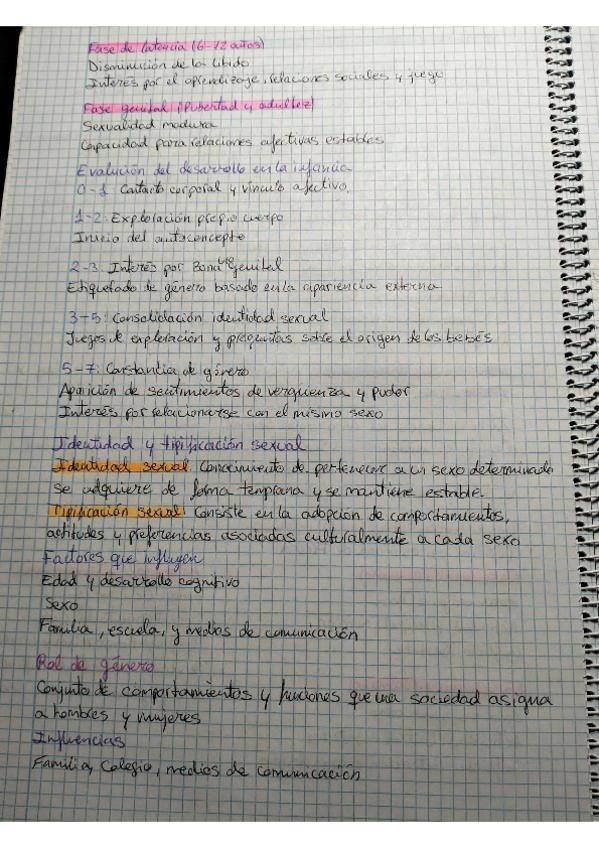 Fase de latencia (6-12 años)
Disminución de la libido
Interés por el aprendizaje, relaciones sociales y juego
Fase genital (Pubertad y adultez)
Sexualidad madura
Capacidad para relaciones afectivas estables
Evolución del desarrollo en la infancia
0-1 Contacto corporal y vínculo afectivo.
1-2: Exploración propio cuerpo
Inicio del autoconcepto
2-3: Interés por zona genital
Etiquetado de género basado en la apariencia externa
3-5: Consolidación identidad sexual
Juegos de exploración y preguntas sobre el origen de los bebés
5-7: Constancia de género
Aparición de sentimientos de verguenza y pudor
Interés por relacionarse con el mismo sexo
Identidad y tipificación sexual
Identidad sexual: Conocimiento de pertenecer a un sexo determinado
se adquiere de forma temprana y se mantiene estable.
Tipificación sexual: Consiste en la adopción de comportamientos,
actitudes y preferencias asociadas culturalmente a cada sexo
Factores que influyen
Edad y desarrollo cognitivo
Sexo
Familia, escuela, y medios de comunicación
Rol de género
Conjunto de comportamientos y funciones que una sociedad asigna
a hombres y mujeres
Influencias
Familia, Colegio, medios de comunicación